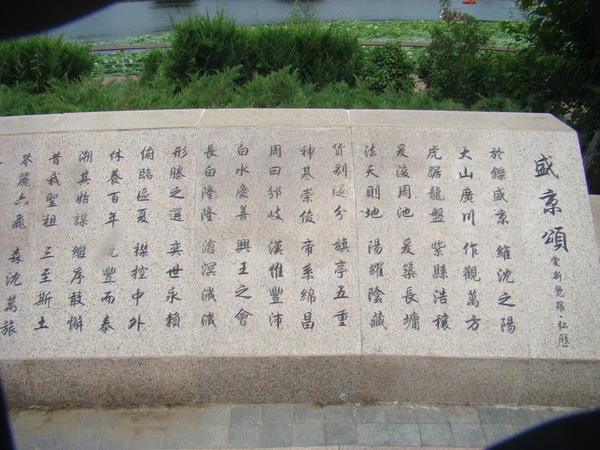 盛京頌
愛新覺羅·弘歷
於鑠盛京 維沈之陽
大山廣川 作觀萬方
虎踞龍盤 紫縣浩穰
爰浚周池 爰築長墉
法天則地 陽耀陰藏
貨別隧分 旗亭五重
神基崇俊 帝系綿昌
周曰邠岐 漢惟豐沛
白水慶善 興王之會
長白隆隆 滄溟濊濊
形勝之選 奕世永賴
俯臨區夏 襟控中外
休養百年 豐而泰
溯其始謀 繼序敢懈
昔我聖祖 三至斯土
麓六飛 森沈萬旅